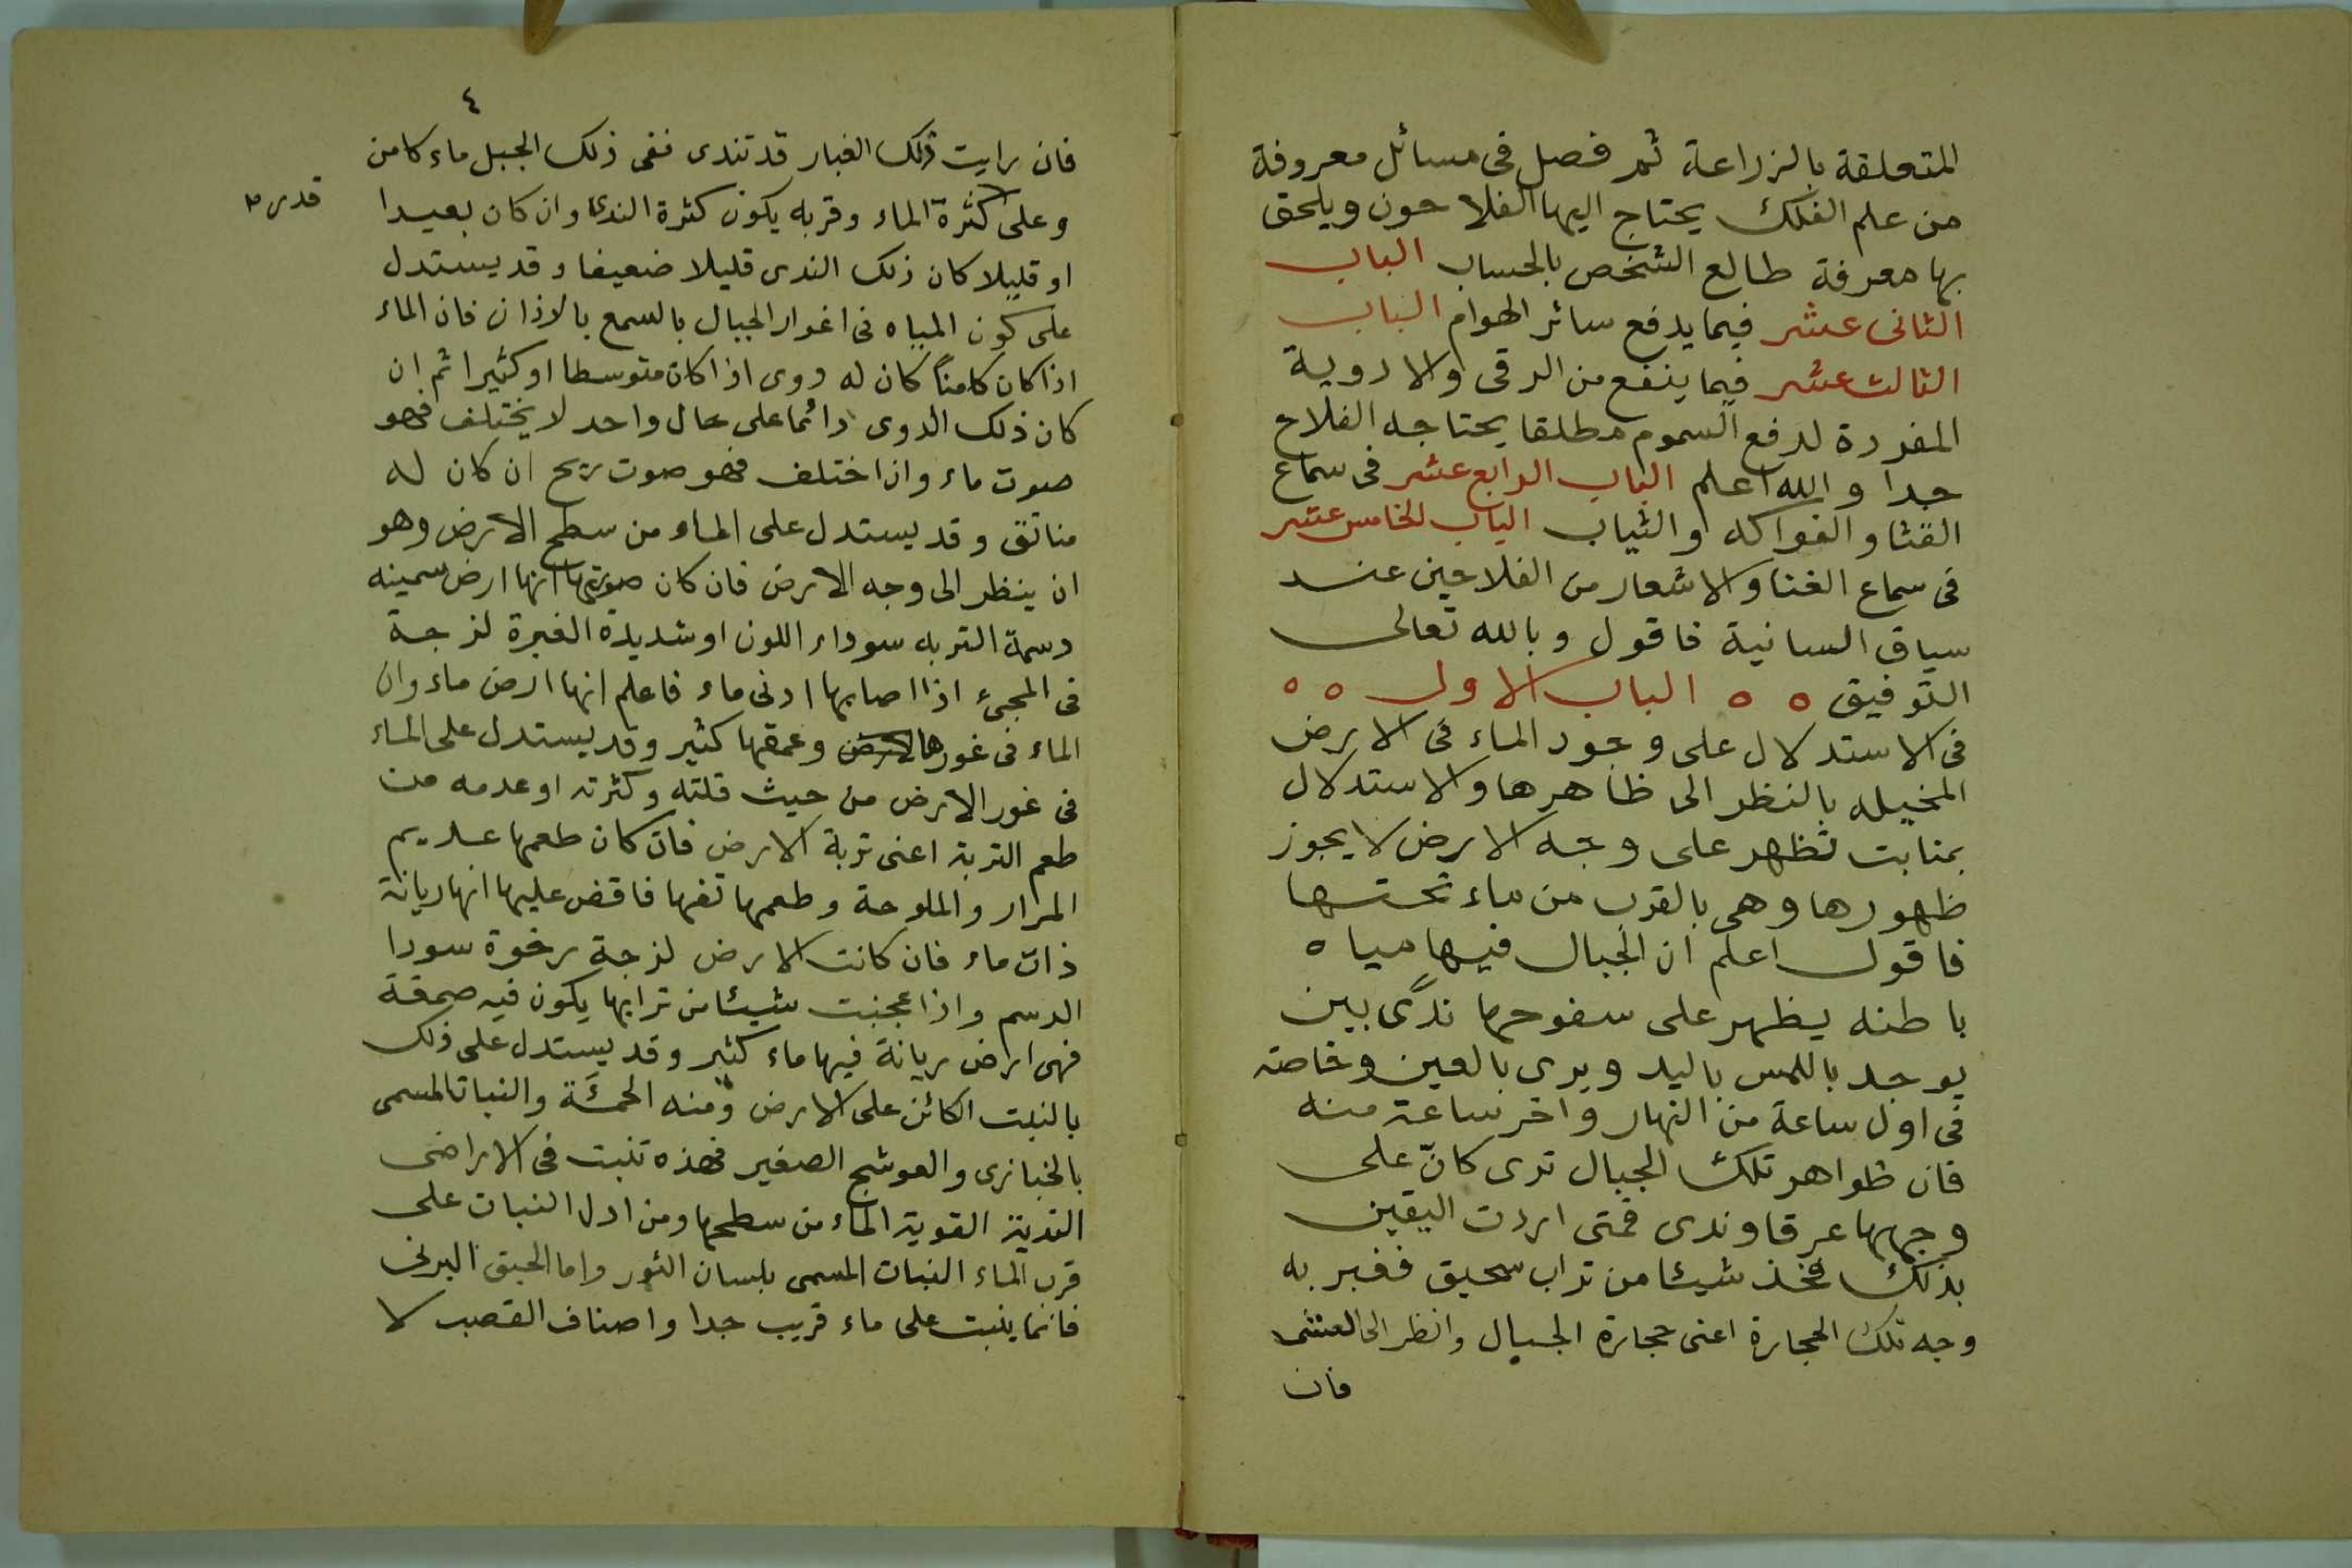 المتعلقة بالزراعة ثم فصل فى مسائل معروفة
من علم الفلك يحتاج اليها الفلاحون ويلحق
بها معرفة طالع الشخص بالحساب الباب
الثانى عشر فيما يدفع سائر الهوام الباب
الثالث عشر فيما ينفع من الرقى والادوية
المفردة لدفع السموم مطلقا يحتاجه الفلاح
جدا والله اعلم الباب الرابع عشر فى سماع
القثا والفواكه والثياب الباب الخامس عشر
فى سماع الغنا والاشعار من الفلاحين عند
سياق السانية فاقول وبالله تعالى
التوفيق ٥ ٥ الباب الاول ٥ ٥
فى الاستدلال على وجود الماء فى الارض
المخيله بالنظر الى ظاهرها والاستدلال
بمنابت تظهر على وجه الارض لا يجوز
ظهورها وهى بالقرب من ماء تحتها
فاقول اعلم ان الجبال فيها مياه
باطنه يظهر على سفوحها ندًى بين
يوجد باللمس باليد ويرى بالعين وخاصته
فى اول ساعة من النهار واخر ساعة منه
فان ظواهر تلك الجبال ترى كانّ على
وجهها عرقا وندى فمتى اردت اليقين
بذلك فخذ شيئا من تراب سحيق فغبر به
وجه تلك الحجارة اعنى حجارة الجبال وانظر الى العشى
فان
٤
فان رايت ذلك الغبار قد تندى ففى ذلك الجبل ماء كامن
وعلى كثرة الماء وقربه يكون كثرة الندى وان كان بعيدا
قدر
او قليلا كان ذلك الندى قليلا ضعيفا وقد يستدل
على كون المياه فى اغوار الجبال بالسمع بالاذان فان الماء
اذا كان كامناً كان له دوى اذا كان متوسطا او كثيرا ثم ان
كان ذلك الدوى دائما على حال واحد لا يختلف فهو
صوت ماء وان اختلف فهو صوت ريح ان كان له
منافق وقد يستدل على الماء من سطح الارض وهو
ان ينظر الى وجه الارض فان كان صورتها انها ارض سمينه
دسمة التربه سوداء اللون او شديدة الغبرة لزجة
فى المجئ اذا اصابها ادنى ماء فاعلم انها ارض ماء وان
الماء فى غورها الارض وعمقها كثير وقد يستدل على الماء
فى غور الارض من حيث قلته وكثرته او عدمه من
طعم التربة اعنى تربة الارض فان كان طعمها عديم
المرار والملوحة وطعمها تفها فاقض عليها انها ريانة
ذات ماء فان كانت الارض لزجة رخوة سودا
الدسم واذا عجنت شيئا من ترابها يكون فيه صمقة
فهى ارض ريانة فيها ماء كثير وقد يستدل على ذلك
بالنبت الكائن على الارض ومنه الحمئة والنبات المسمى
بالخبازى والعوشج الصغير فهذه تنبت فى الاراضى
النديّة القوية الماء من سطحها ومن ادل النبات على
قرب الماء النبات المسمى بلسان الثور واما الحبق البرنى
فانما ينبت على ماء قريب جدا واصناف القصب لا